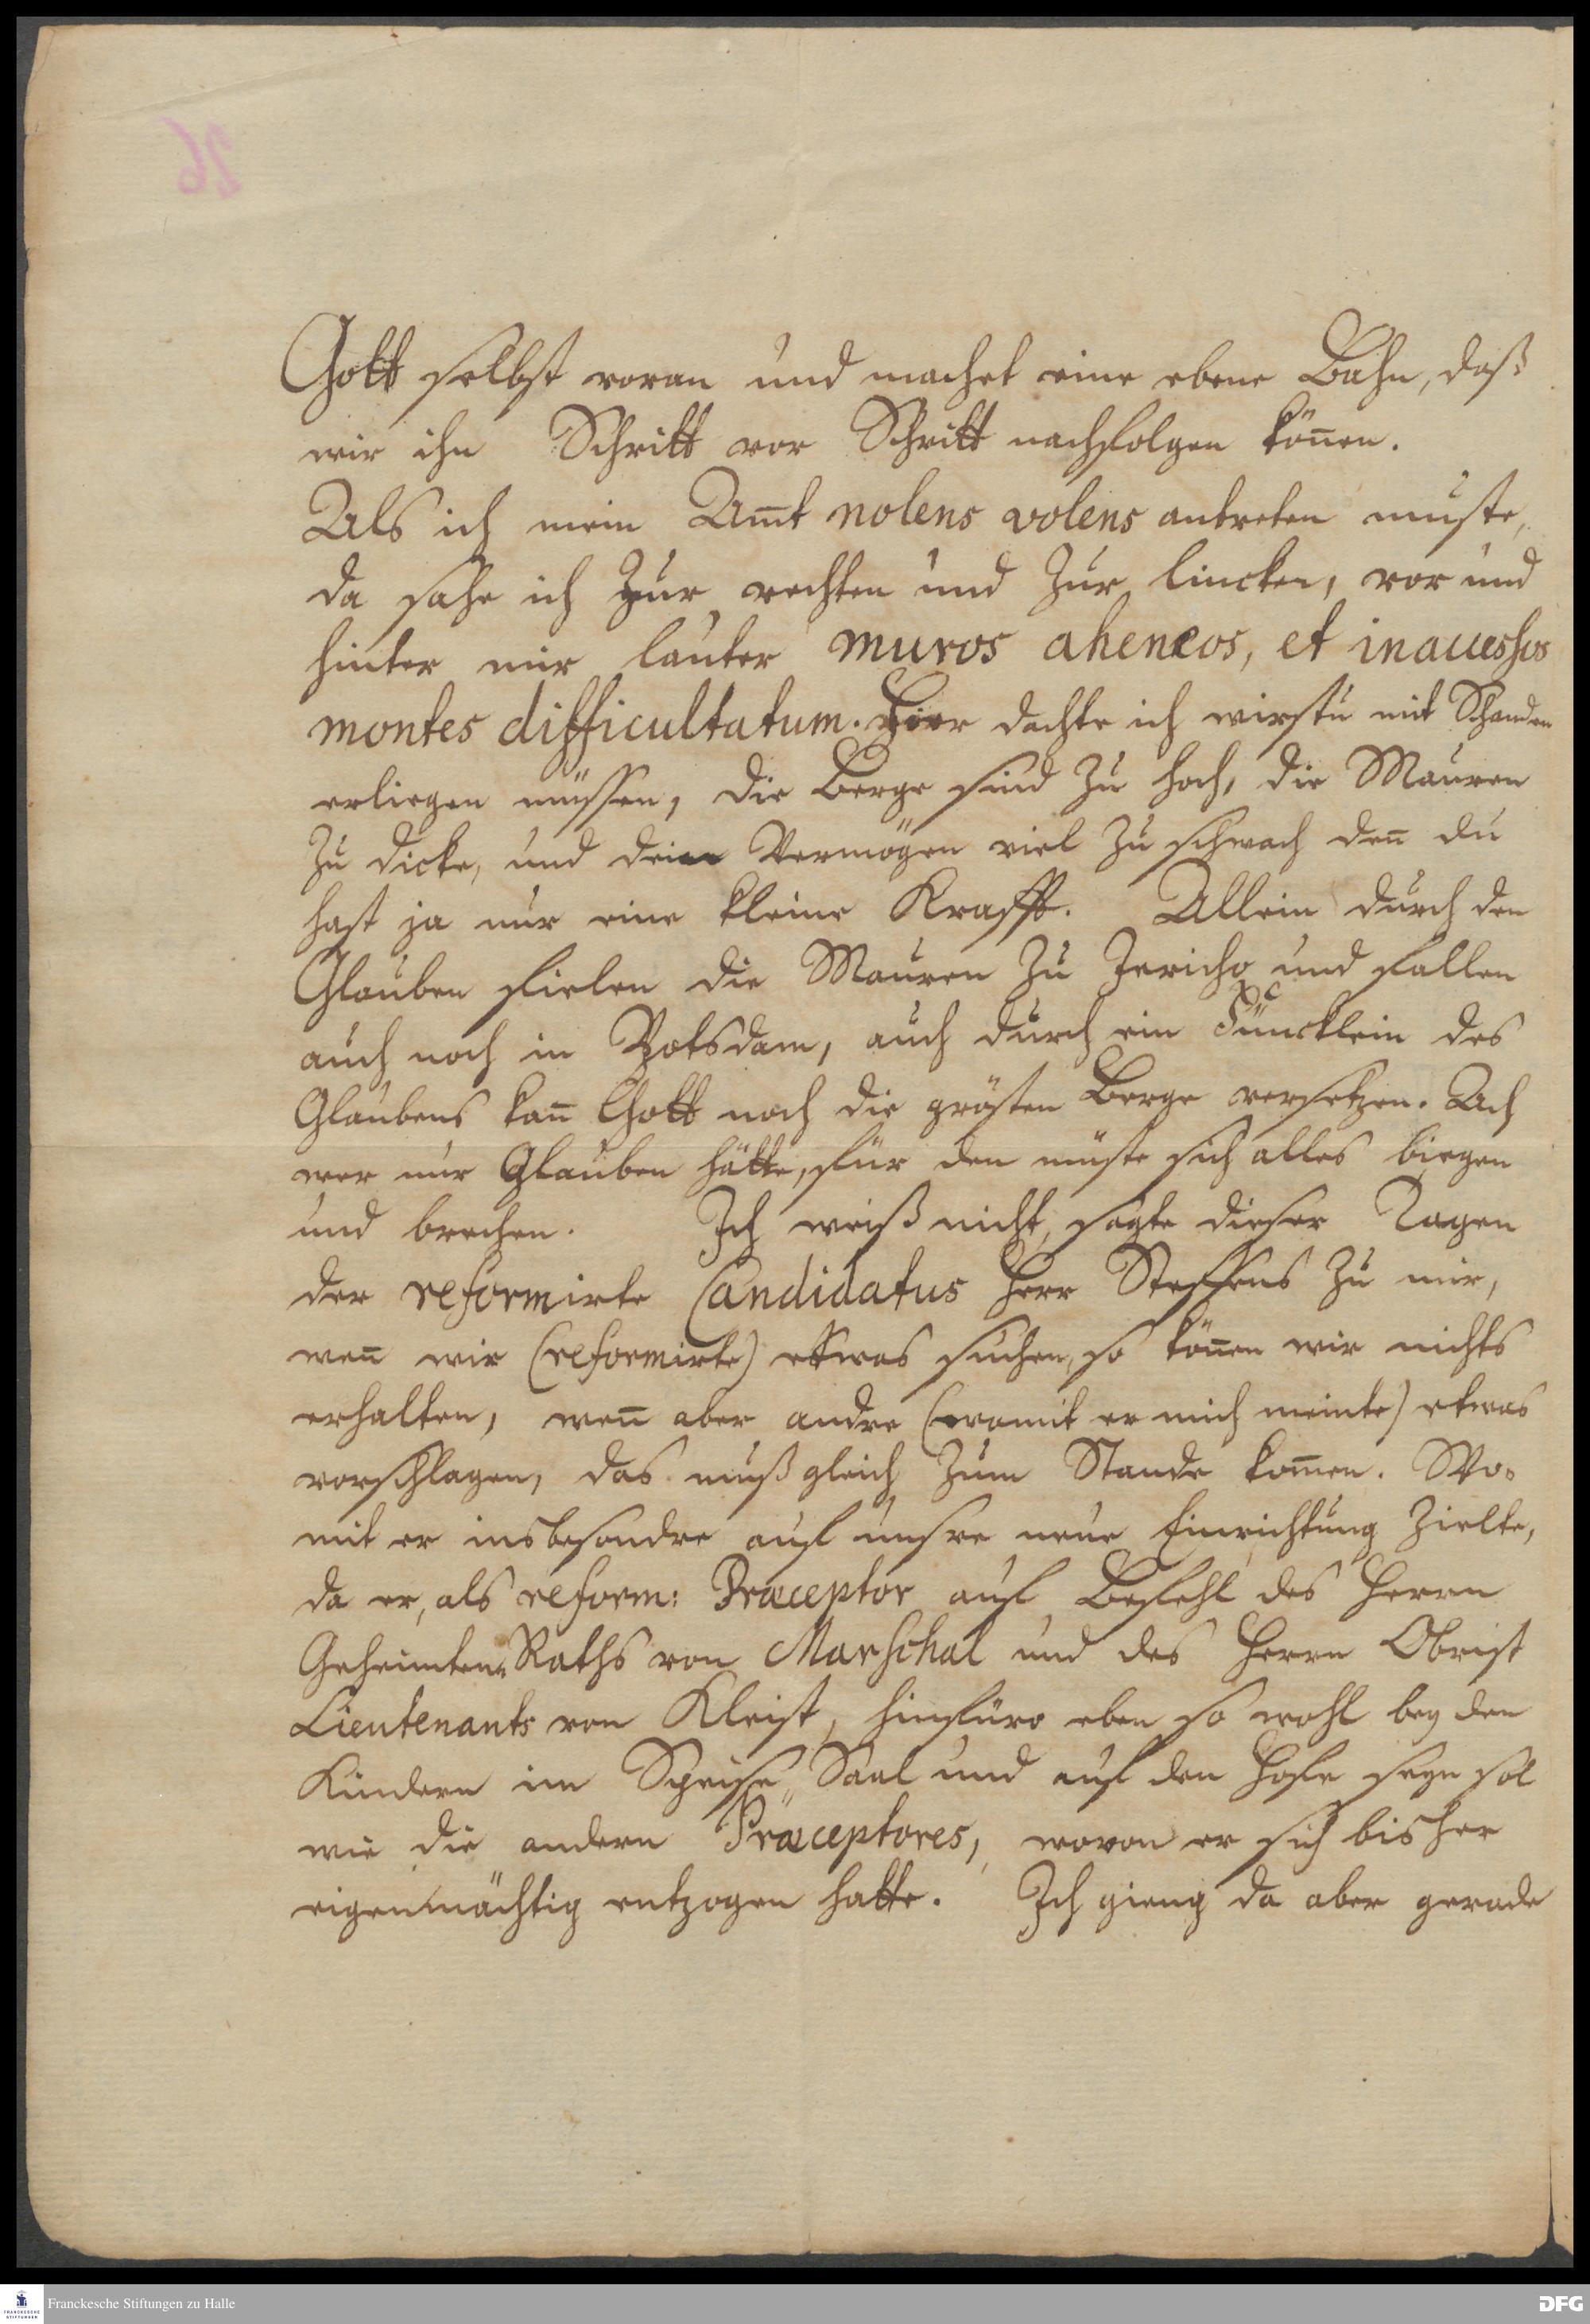 Gott selbst voran und machet eine ebene Bahn, daß
wir ihn Schritt vor Schritt nachfolgen kön̄en.
Als ich mein Am̄t nolens volens antreten muste,
da sahe ich zur rechten und zur lincken, vor und
hinter mir lauter muros aheneos, et inaccessos
montes difficultatum. Hier dachte ich wirstu mit Schanden
erliegen müssen, die Berge sind zu hoch, die Mauren
zu dicke, und dein Vermögen viel zu schwach den̄ du
hast ja nur eine kleine Krafft. Allein durch den
Glauben fielen die Mauren zu Jericho und fallen
auch noch in Potsdam, auch durch ein Füncklein des
Glaubens kan̄ Gott noch die grösten Berge versetzen. Ach
wer nur Glauben hätte, für den müste sich alles biegen
und brechen. Ich weiß nicht, sagte dieser Tagen
der reformirte Candidatus Herr Steffens zu mir,
wen̄ wir (reformirte) etwas suchen, so kön̄en wir nichts
erhalten, wen̄ aber andre (womit er mich meinte) etwas
vorschlagen, das muß gleich zum Stande kom̄en. Wo-
mit er insbesondre auf unsre neue Einrichtung zielte,
da er, als reform: Præceptor auf Befehl des Herrn
Geheimten Raths von Marschal und des Herrn Obrist
Lieutenants von Kleist, hinfüro eben so wohl bey den
Kindern im Speise Saal und auf den Hofe seyn sol
wie die andern Præceptores, wovon er sich bisher
eigenmächtig entzogen hatte. Ich gieng da aber gerade
Franckesche Stiftungen zu Halle
DFG